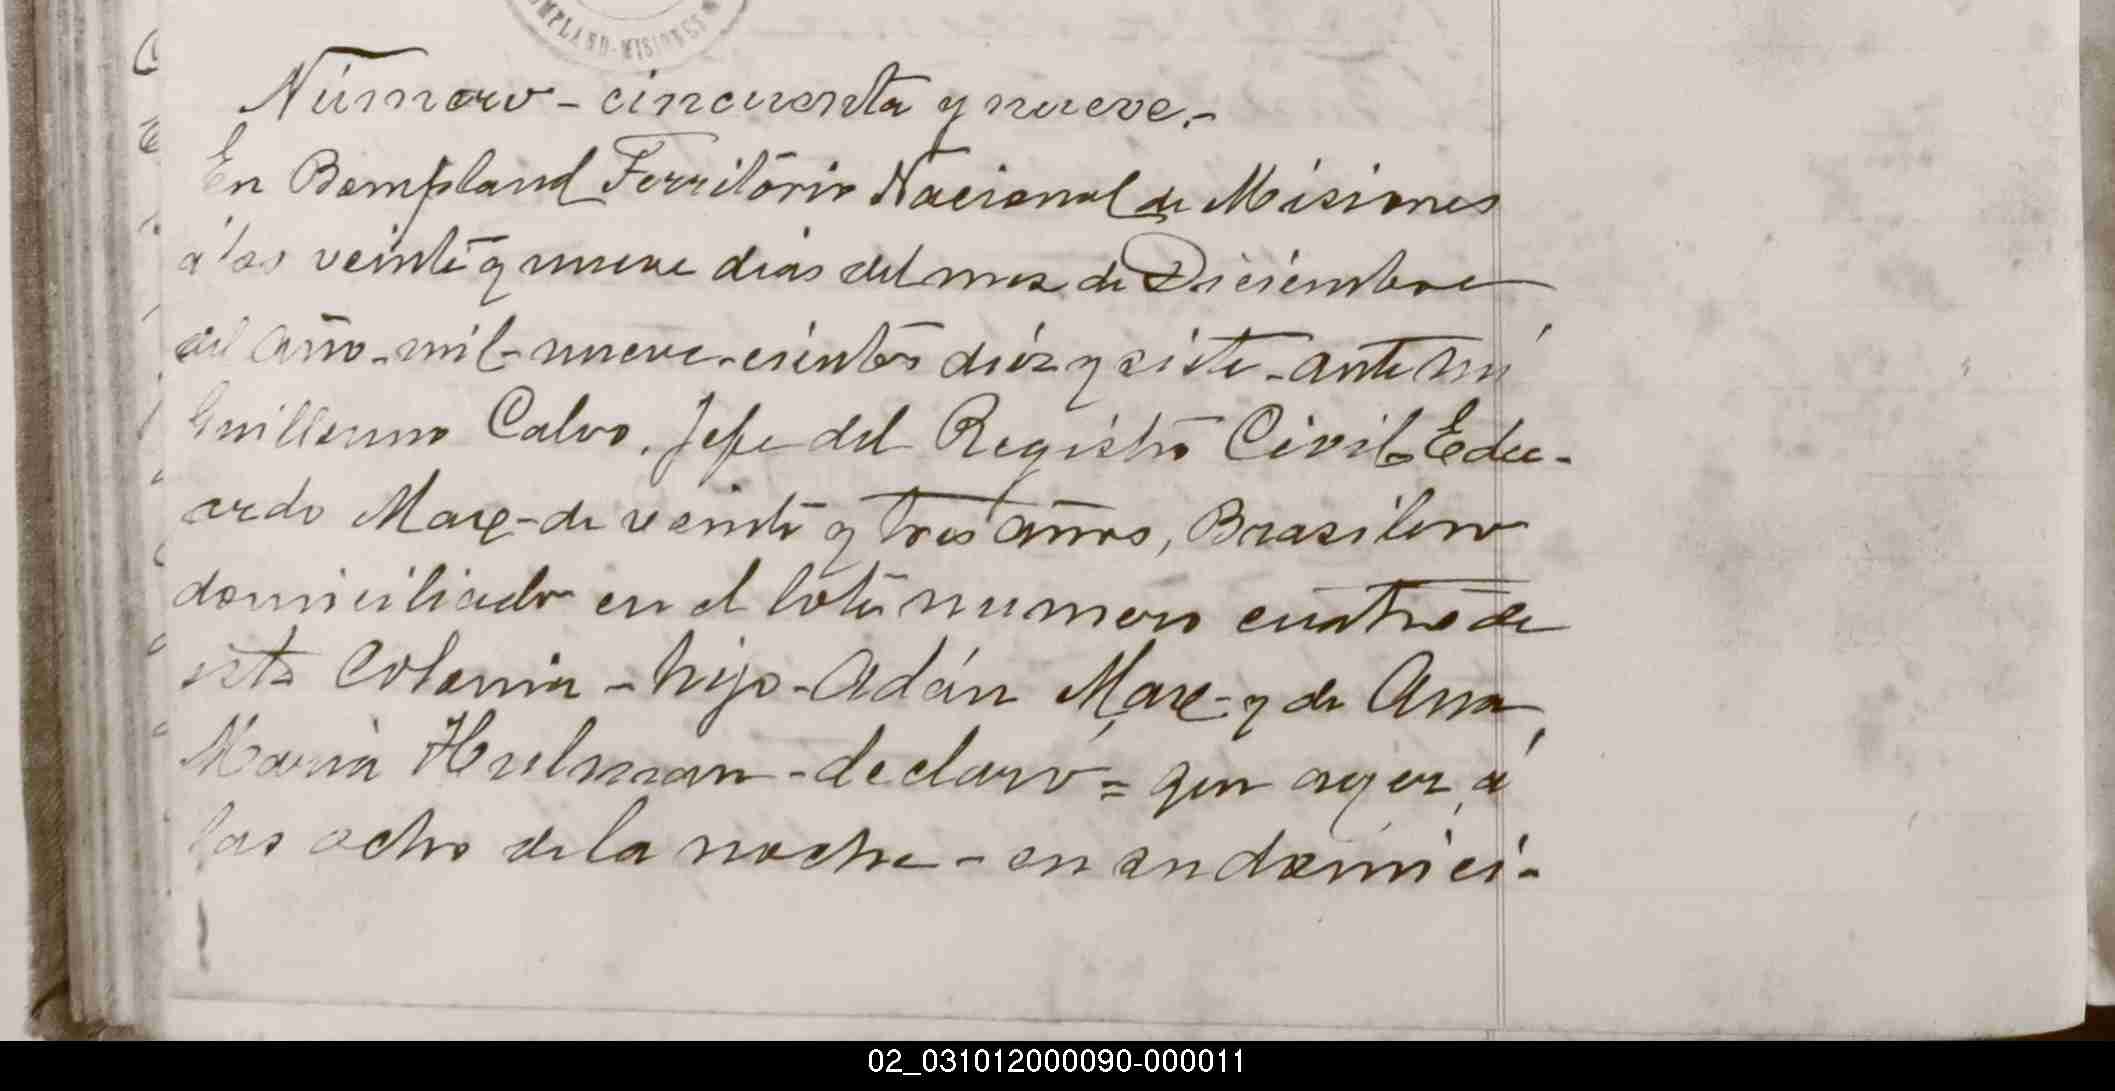 OMPLAND-MISIONES
Número - cincuenta y nueve.-
En Bompland Territorio Nacional de Misiones
á los veinte y nueve dias del mes de Diciembre
del año mil-nueve-cientos diéz y siete - ante mi
Guillermo Calvo, Jefe del Registro Civil Edu-
ardo Marx - de veinte y tres años, Brasilero
domiciliado en el lote numero cuatro de
esta Colonia - hijo - Adán Marx - y de Ana
Maria Hulman - declaró = que ayer á
las ocho de la noche - en su domici-
02_031012000090-000011